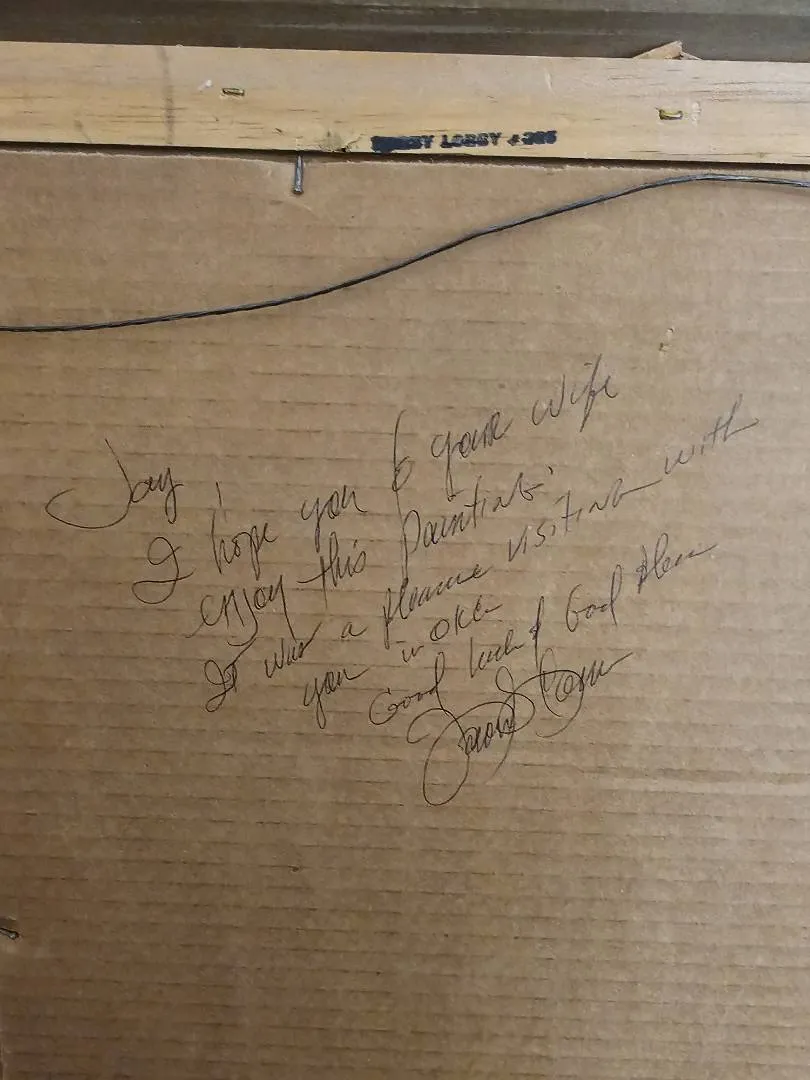 HOBBY LOBBY #305
Jay,
I hope you & your wife
enjoy this painting.
It was a pleasure visiting with
you in OKC
Good luck & God Bless